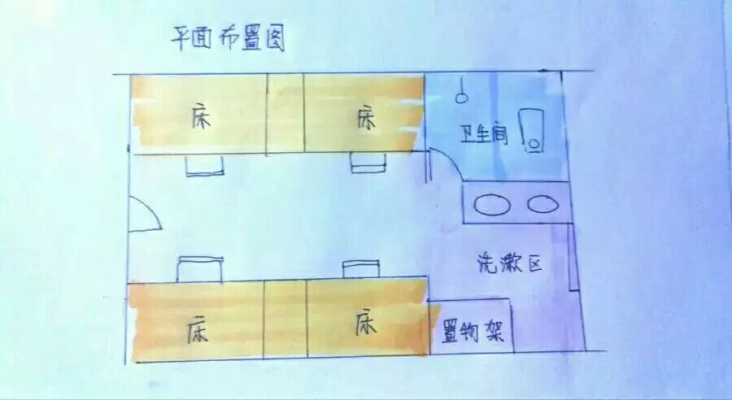 平面布置图
床
床
卫生间
洗漱区
床
床
置物架